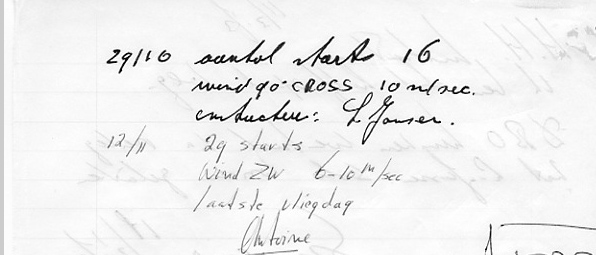 29/10 aantal starts 16
wind 90° CROSS 10 m/sec.
instructeur: L. Jansen.
12/11 29 starts
Wind ZW 6-10 m/sec
laatste vliegdag
Antoine